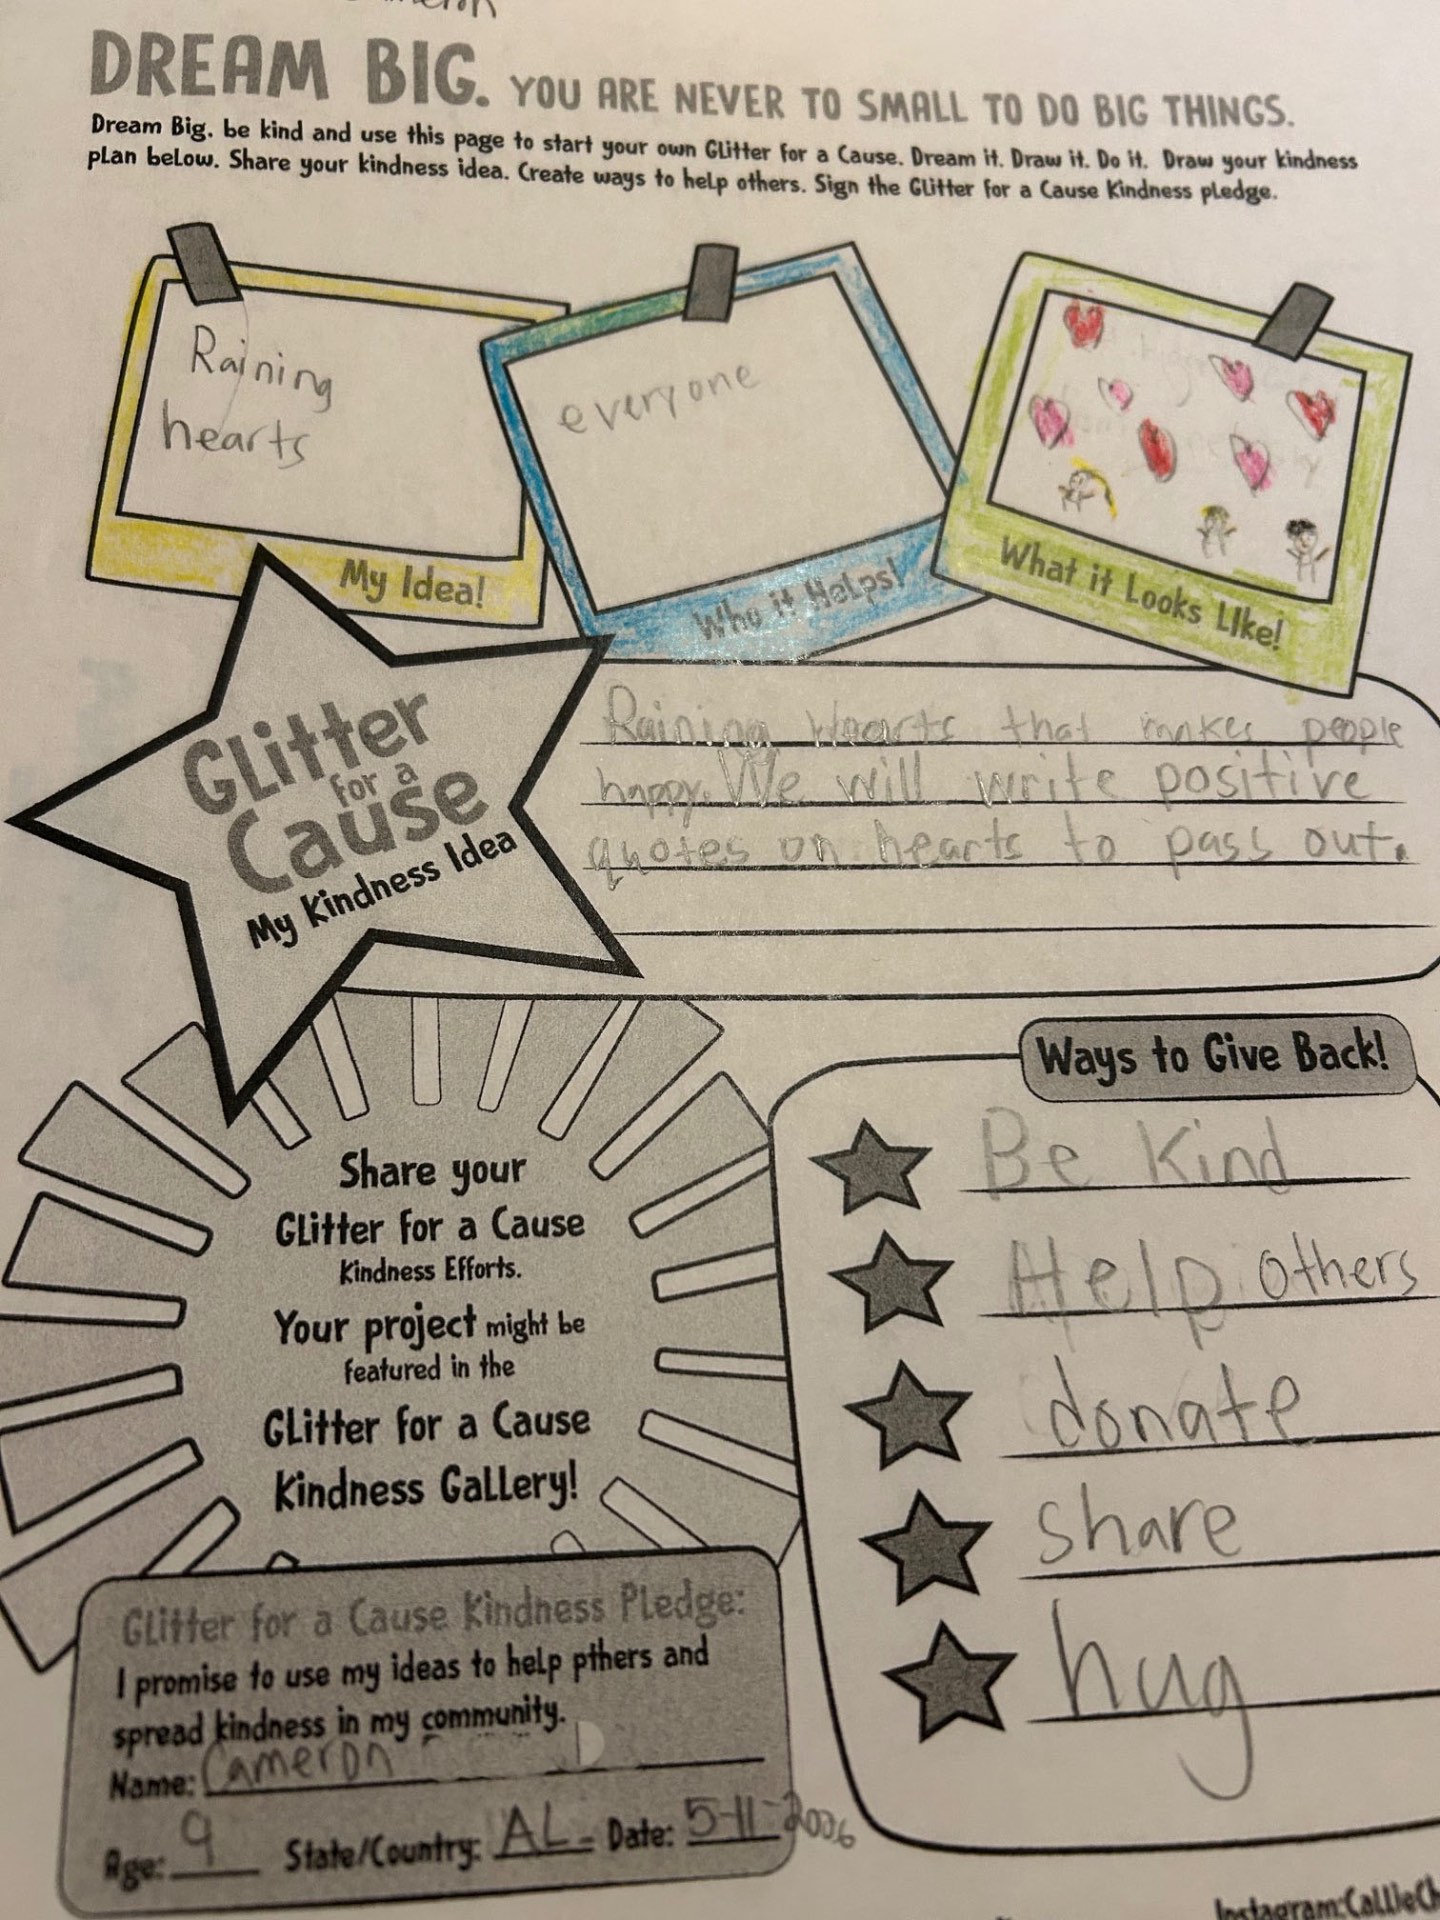 DREAM BIG. YOU ARE NEVER TO SMALL TO DO BIG THINGS.
Dream Big. be kind and use this page to start your own Glitter for a Cause. Dream it. Draw it. Do it. Draw your kindness
plan below. Share your kindness idea. Create ways to help others. Sign the Glitter for a Cause Kindness pledge.
Raining
hearts
My Idea!
everyone
Who it Helps!
What it Looks LIke!
Glitter
for a
Cause
My Kindness Idea
Raining Hearts that makes people
happy. We will write positive
quotes on hearts to pass out.
Share your
Glitter for a Cause
Kindness Efforts.
Your project might be
featured in the
Glitter for a Cause
Kindness Gallery!
Ways to Give Back!
Be Kind
Help others
donate
share
hug
Glitter for a Cause Kindness Pledge:
I promise to use my ideas to help pthers and
spread kindness in my community.
Name: Cameron D
Age: 9 State/Country: AL Date: 5-11-2026
Instagram:CallieCh